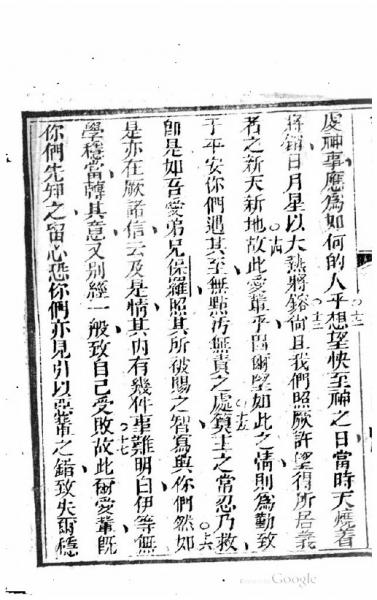 虔神事應爲如何的人乎想望快至神之日當時天燒着
將銷日月星以大熱將鎔尚且我們照厥許望得所居義
者之新天新地故此愛輩乎因爾望如此之情則爲勤致
于平安你們遇其至無點汚無責之處算主之常忍乃救
師是如吾愛弟兄保羅照其所被賜之智寫與你們然如
是亦在厥諸信云及是情其內有幾件事難明白伊等無
學穩當轉其意又別經一般致自己受敗故此爾愛輩旣
你們先知之留心恐你們亦見引以惡輩之錯致失爾穩
十二
十三
十四
十五
十六
十七
Google